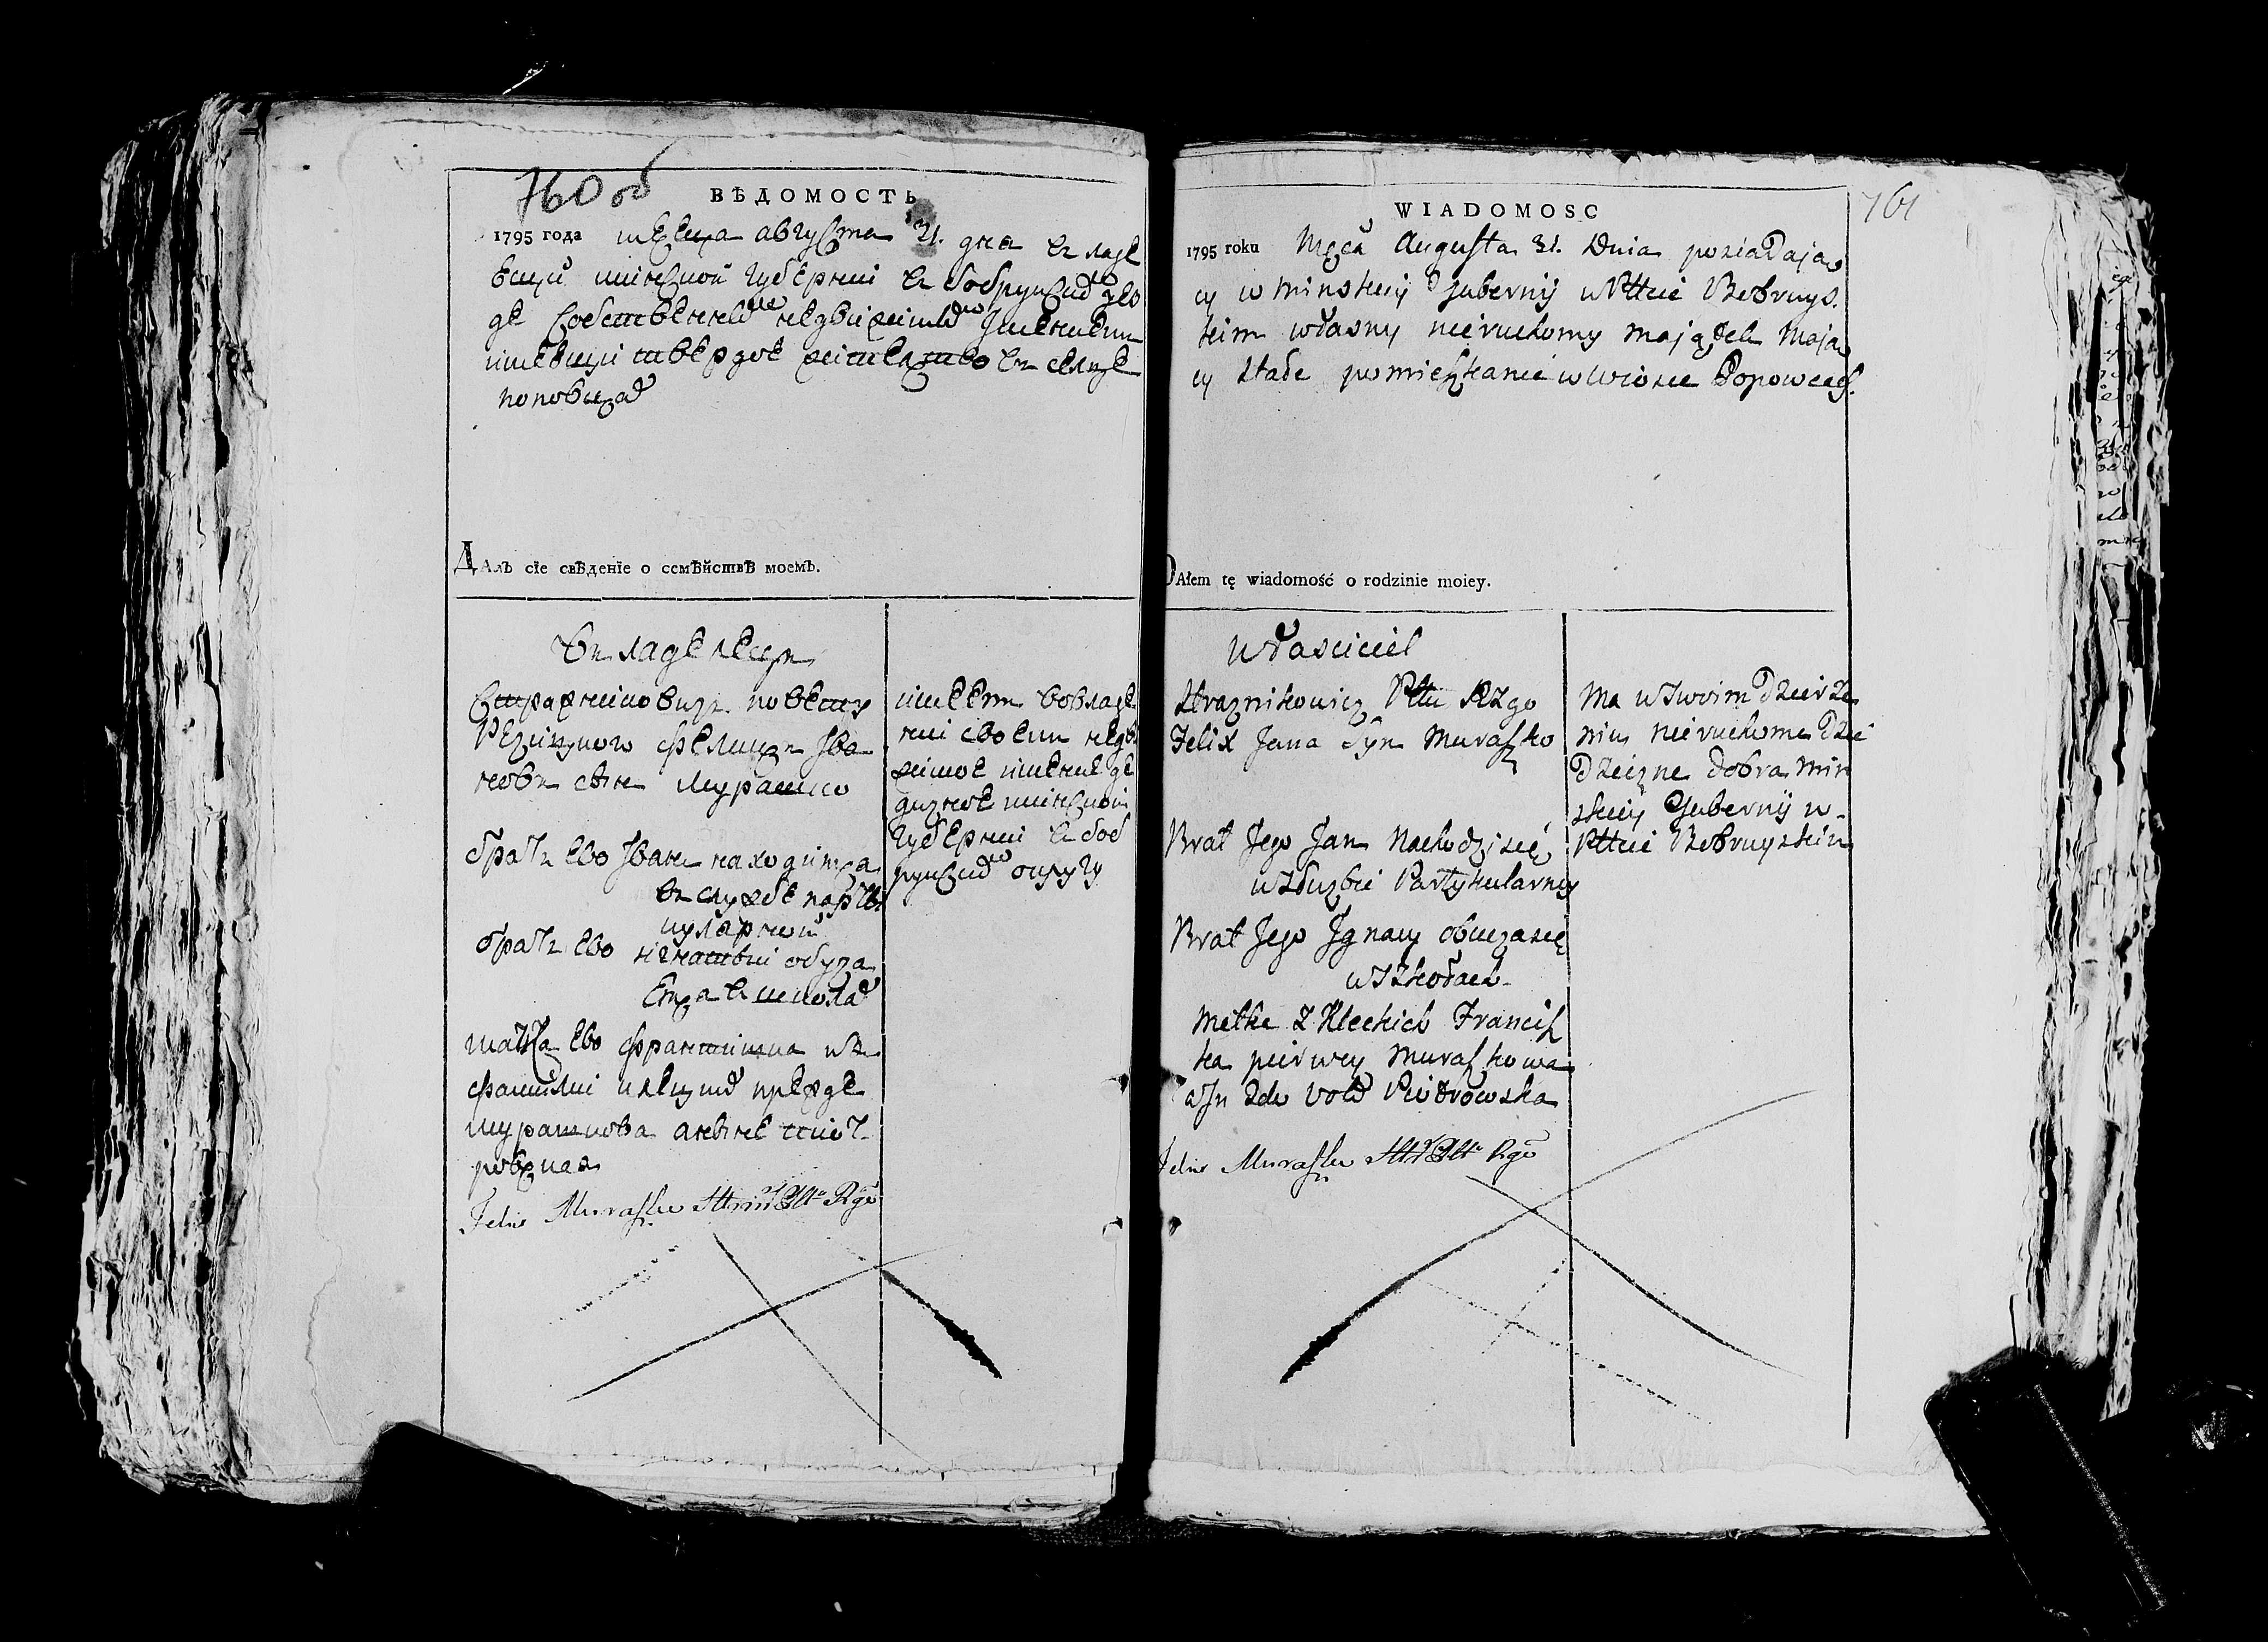 760 об
ВѢДОМОСТЬ
1795 года мѣсеца августа 31. дня владѣ
ющи минской губернии в бобруискомъ уез
де собственнымъ недвижимымъ имениемъ
имѣющи твердое жителство в селце
поповцахъ
ДАлъ сїе свѣденїе о семѣйствѣ моемъ.
владелецъ
Стражниковичъ повету
Резицкого Фелицъ Ива
новъ сынъ Мурашко
братъ ево Иванъ находитца
в службе парты
кулярной
братъ ево игнатьи обуча
етца в школахъ
матка ево францишка из
фамилии клецкихъ прежде
мурашкова а ныне пиот
ровская
Felix Muraszko
имеетъ во владе
нии своемъ недви
жимое имение де
дизное минской
губернии в боб
руискомъ округу
WIADOMOSC
761
1795 roku Męca Augusta 31. Dnia posiadają
cy w minskiey Gubernij w Pttcie Bobruys.
kim własny nieruchomy majątek mają
cy stałe pomieszkanie w wiosce Popowcach.
DAłem tę wiadomość o rodzinie moiey.
Właściciel
Straznikowicz Pttu RZgo
Felix Jana Syn Muraszko
Brat Jego Jan Nachodzi się
w Służbie Partykularney
Brat Jego Ignacy obucza się
w Szkołach
Matka z Kleckich Francisz
ka pierwey Muraszkowa
Piotrowska
Felix Muraszko
Ma w Swoim Dzierże
niu nieruchome Dzie
Dziczne Dobra Min
skiey Gubernij w
Pttcie Bobruyskim